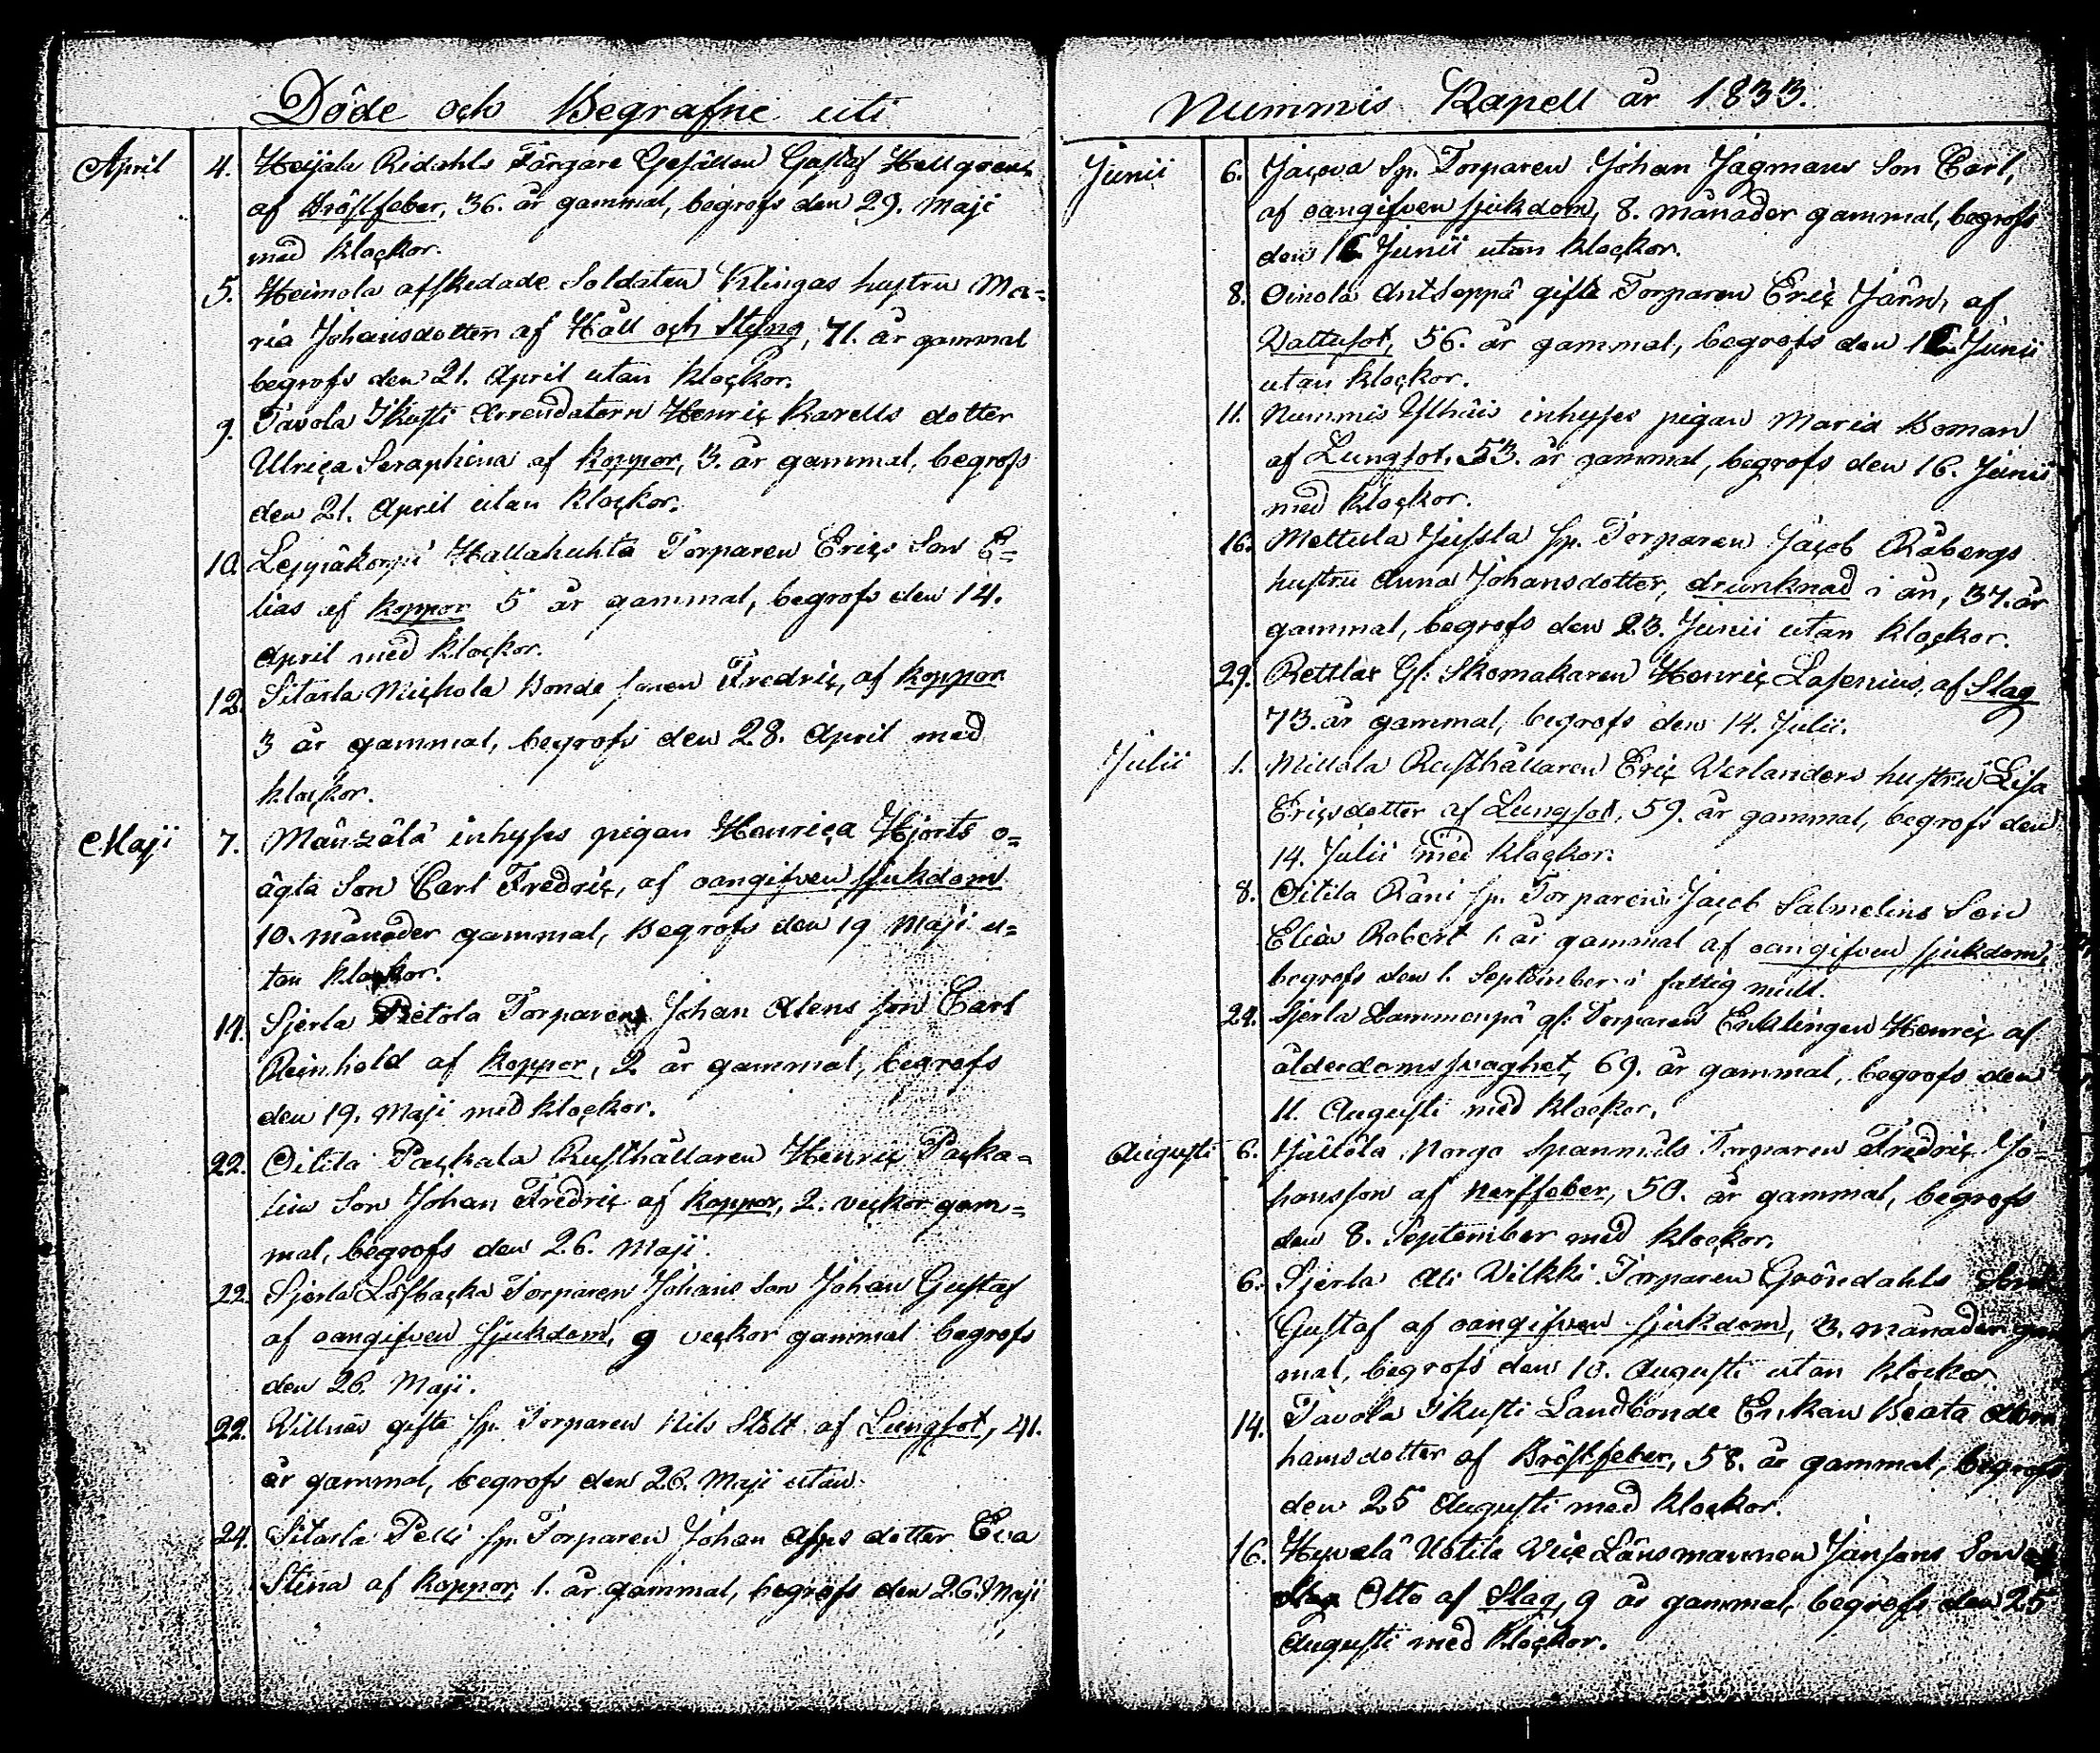 Döde och Begrafne uti
April 4. Heijala Ridahls Färgare Gesällen Gustaf Hellgren
af Bröstfeber, 36. år gammal, begrofs den 29. Maji
med klockor.
5. Heimola afskedade Soldaten Klingas hustru Ma=
ria Johansdotter af Håll och Styng, 71. år gammal
begrofs den 21. April utan klockor.
9. Tavola Skusti Arrendatorn Henric Karells dotter
Ulrica Seraphina af koppor, 3. år gammal, begrofs
den 21. April utan klockor.
10. Leppäkorpi Hallahuhta Torparen Erics Son E=
lias af koppor 5 år gammal, begrofs den 14.
April med klockor.
12. Sitarla Michola Bonde sonen Fredric, af koppor
3 år gammal, begrofs den 28. April med
klockor.
Maji 7. Mänzälä inhyses pigan Henrica Hjorts o=
ägta Son Carl Fredric, af oangifven sjukdom
10. månader gammal, Begrofs den 19 Maji u=
tan klockor.
14. Sjerla Pietola Torparens Johan Alens son Carl
Reinhold af koppor, 2 år gammal, begrofs
den 19. Maji med klockor.
22. Oitila Packala Rusthållaren Henric Packa=
lins Son Johan Fredric af koppor, 2. veckor gam=
mal, begrofs den 26. Maji.
22. Sjerla Löfbacka Torparen Johans Son Johan Gustaf
af oangifven sjukdom, 9 veckor gammal begrofs
den 26. Maji.
22. Villnäs gifte sp. Torparen Nils Stolt af Lungsot, 41.
år gammal, begrofs den 26. Maji utan
24. Sitarla Pelli sp. Torparen Johan dotter Eva
Stina af koppor, 1. år gammal, begrofs den 26. Maji
Nummis Kapell år 1833.
Junii 6. Jacova Sp. Torparen Johan Jagmans Son Carl,
af oangifven sjukdom, 8. månader gammal, begrofs
den 16 Junii utan klockor.
8. Oinola Antseppä gifte Torparen Eric Järn, af
Vattusot, 56. år gammal, begrofs den 16 Junii
utan klockor.
11. Nummis inhyses pigan Maria Boman
af Lungsot, 53. år gammal, begrofs den 16. Junii
med klockor.
16. Mettula Jussla sp. Torparen Jacob Råbergs
hustru Anna Johansdotter, drunknad i ån, 37. år
gammal, begrofs den 23. Junii utan klockor.
29. Rettlax Gf: Skomakaren Henric Lasenius, af Slag
73. år gammal, begrofs den 14. Julii.
Julii 1. Millola Rusthållaren Eric Verlanders hustru Lisa
Ericsdotter af Lungsot, 59. år gammal, begrofs den
14. Julii med klockor.
8. Oitila Räni sp. Torparens Jacob Salmelins Son
Elias Robert 1. år gammal af oangifven sjukdom,
begrofs den 1. September i fattig mull.
24. Sjerla Lammenpä gf: Torparen Henric af
ålderdomssvaghet, 69. år gammal, begrofs den
11. Augusti med klockor.
Augusti 6. Jällölä Norgo Spannmåls Torparen Fredric Jo=
hansson af Nerffeber, 50. år gammal, begrofs
den 8. September med klockor.
6. Sjerla Ali Vilkki Torparen Gröndahls Son
Gustaf af oangifven sjukdom, 3. månader gam
mal, begrofs den 10. Augusti utan klockor
14. Tavola Skusti Landbonde Enkan Beata Abra
hamsdotter af Bröstfeber, 58. år gammal, begrofs
den 25 Augusti med klockor.
16. Hyvelä Uotila Vice Länsmannen Jansons Son
Otto af Slag, 9 år gammal, begrofs den 25
Augusti med klockor.